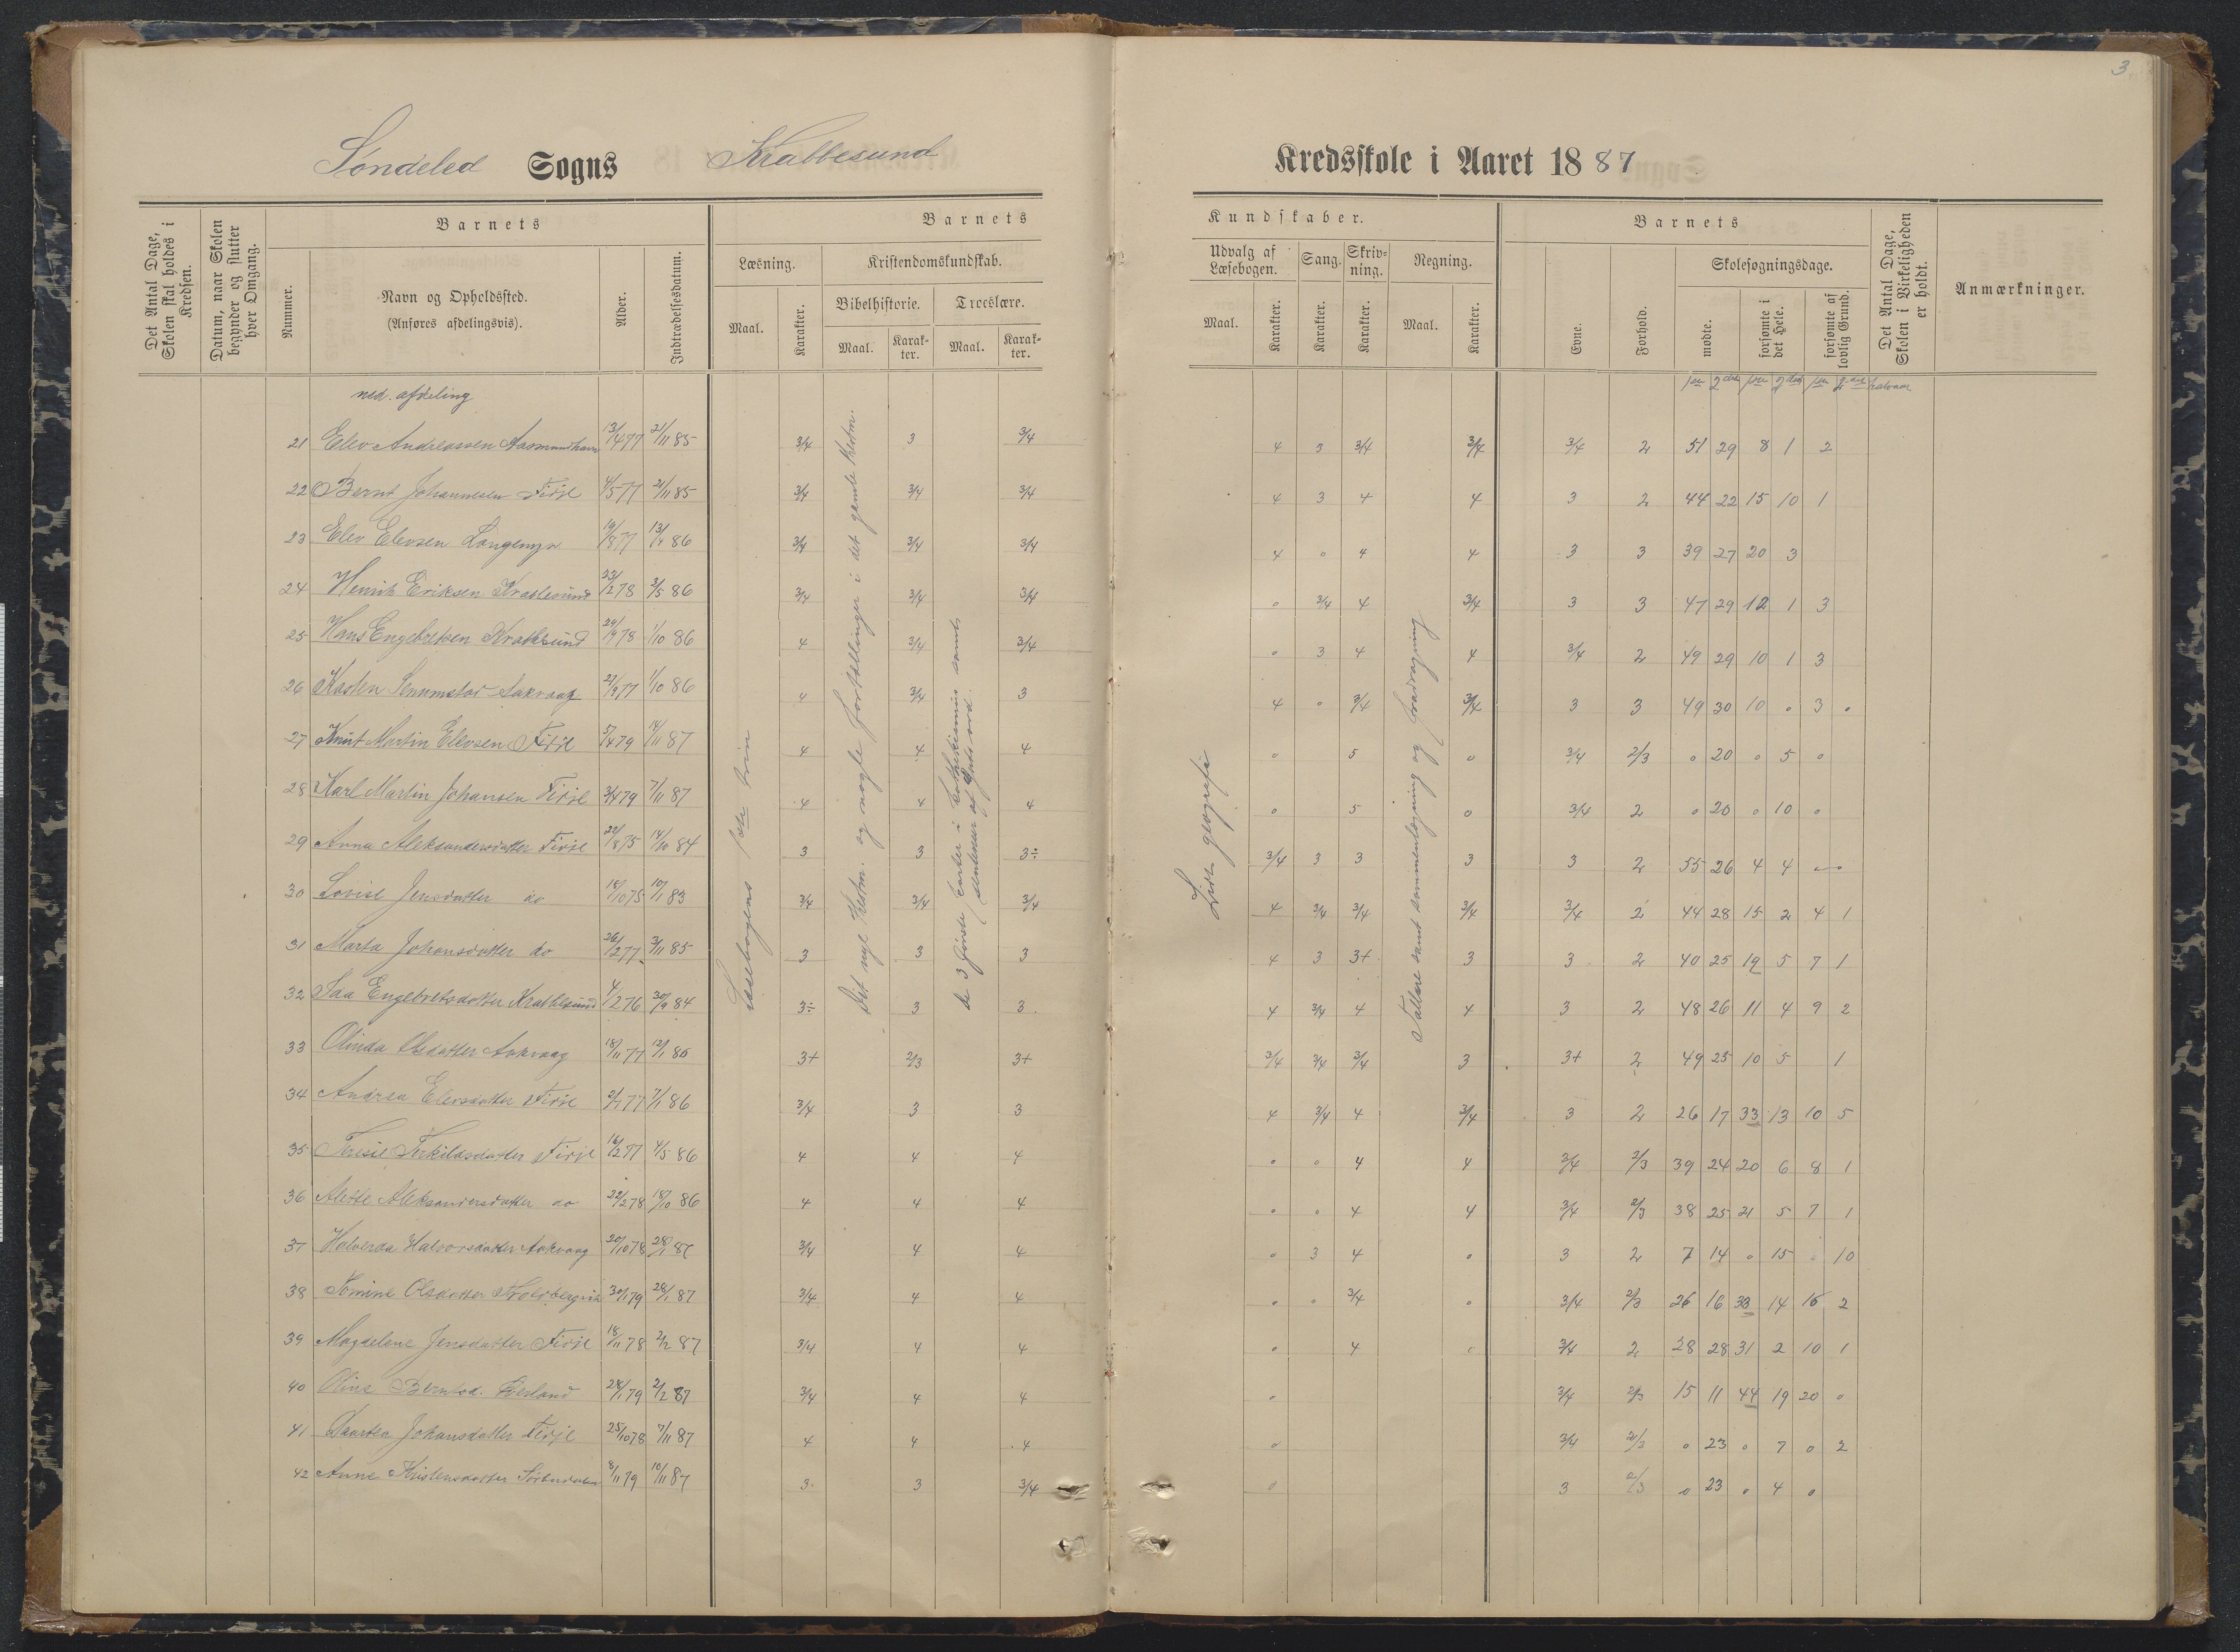 3
Søndeled Sogns Krabbesund Kredsskole i Aaret 1887
Det Antal Dage, Skolen skal holdes i Kredsen.
Datum, naar Skolen begynder og slutter hver Omgang.
Barnets
Nummer.
Navn og Opholdssted.
(Anføres afdelingsvis).
Alder.
Indtrædelsesdatum.
Barnets
Læsning.
Maal.
Karakter.
Kristendomskundskab.
Bibelhistorie.
Maal.
Karak-
ter.
Troeslære.
Maal.
Karak-
ter.
Kundskaber.
Udvalg af
Læsebogen.
Maal.
Karakter.
Sang.
Karakter.
Skriv-
ning.
Karakter.
Regning.
Maal.
Karakter.
Barnets
Evne.
Forhold.
Skolesøgningsdage.
mødte.
forsømte i det Hele.
forsømte af lovlig Grund.
Det Antal Dage, Skolen i Virkeligheden er holdt.
Anmærkninger.
ned. afdeling
21 Elev Andreassen 13/4 77 21/11 85 3/4 3 3/4 4 3 3/4 3/4 3/4 2 51 29 8 1 2
22 Bernt Johannesen Firje 4/5 77 21/11 85 3/4 3/4 3/4 4 3 4 4 3 2 44 22 15 10 1
23 Elev Elevsen 19/8 77 86 3/4 3/4 3/4 4 0 4 4 3 3 39 27 20 3
24 Henrik Eriksen Krabbesund 23/2 78 3/5 86 3/4 3/4 3/4 0 3/4 4 3/4 3 3 47 29 12 1 3
25 Hans Engebretsen Krabbesund 24/9 78 1/10 86 4 3/4 3/4 0 3 4 4 3/4 2 49 29 10 1 3
26 Kasten Aakvaag 21/9 77 1/10 86 4 3/4 3 4 0 3/4 3/4 3 3 49 30 10 0 3 0
27 Knut Martin Elevsen Firje 5/4 79 14/11 87 4 4 4 0 5 0 3/4 2/3 0 20 0 5 0
28 Karl Martin Johansen Firje 3/4 79 7/11 87 4 4 4 0 5 0 3/4 2 0 20 0 10 0
29 Anna Aleksandersdatter Firje 22/8 75 14/10 84 3 3 3÷ 3/4 3 3 3 3 2 55 26 4 4
30 Lovise Jensdatter do 18/10 75 10/1 83 3/4 3/4 3/4 4 3/4 3/4 3/4 3/4 2 44 28 15 2 4 1
31 Marta Johansdatter do 26/2 77 3/11 85 3 3 3 4 3 3+ 3 3 2 40 25 19 5 7 1
32 Engebretsdatter Krabbesund 4/2 76 30/9 84 3÷ 3 3 4 3/4 4 4 3 2 48 26 11 4 9 2
33 Olinda Olsdatter Aakvaag 18/11 77 12/1 85 3+ 2/3 3+ 3/4 3/4 3/4 3 3+ 2 49 25 10 5 1
34 Andrea Elevsdatter Firje 2/1 77 7/1 86 3/4 3 3 4 3/4 4 3/4 3 2 26 17 33 13 10 5
35 Terkildsdatter Firje 16/2 77 4/5 86 4 4 4 0 0 4 4 3/4 2/3 39 24 20 6 8 1
36 Aleksandersdatter do 22/2 78 18/10 86 4 4 4 0 0 4 4 3/4 2/3 38 25 21 5 7 1
37 Halvorsdatter Aakvaag 20/10 78 28/1 87 3/4 4 4 0 3 4 0 3 2 7 14 0 15 0 10
38 Tomine Olsdatter 30/1 79 28/1 87 3/4 4 4 0 0 3/4 0 3/4 2/3 26 16 33 14 16 2
39 Magdelene Jensdatter Firje 18/11 78 2/2 87 3/4 4 4 0 4 0 3/4 2 28 28 31 2 10 1
40 Oline Berntsd. 28/1 79 2/2 87 3/4 4 4 0 3/4 2/3 15 11 44 19 20 0
41 Johansdatter Firje 25/10 78 7/11 87 4 4 4 0 3/4 2/3 0 23 0 7 0 2
42 Anne Kristensdatter 8/11 79 10/11 87 3 3 3/4 0 3 2/3 0 23 0 4 0
Læsebogens 1ste trin
Det nye Testm. og nogle fortællinger i det gamle Testm.
de 3 første parter i samt
sentenser af Guds ord.
Lidt geografi
Tallære samt sammenlægning og fradragning
1ste 2det 1ste 2det 1ste 2det halvaar